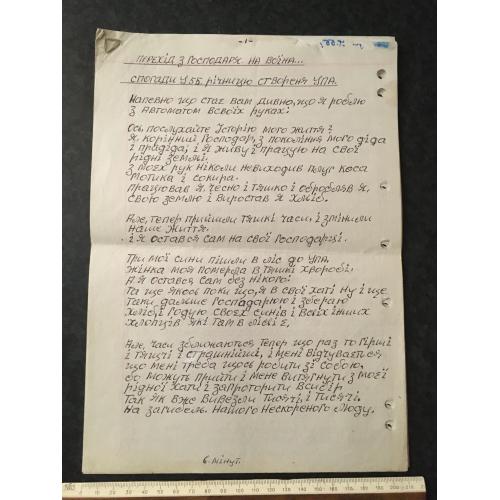 -1-
ПЕРЕХІД З ГОСПОДАРЯ НА ВОЇНА...
СПОГАДИ У 55. РІЧНИЦЮ СТВОРЕНЯ УПА.
Напевно що стає вам дивно, що я роблю
з автоматом в своїх руках:
Ось послухайте Історію мого життя:
Я, корінний господар, з покоління мого діда
і прадіда, і я живу і працюю на свої
рідні землі.
З моєх рук ніколи невиходив плуг коса
мотика і сокира.
Працював я, чесно і тяшко і обробляв я,
свою землю і виростав я хліб.
Але, тепер прийшли тяшкі часи, і змінили
наше життя.
і я остався сам на свої господарці.
Три мої сини пішли в ліс до УПА.
Жінка моя померла в тяшкі хоробі,
а я остався сам без нікого:
Та ще якось поки що, я в свої хаті ну і ще
таки дальше господарюю і збераю
хліб і годую своєх синів і всіх інших
хлопців які там в лісі є.
Але, часи зближаються тепер що раз то гірші
і тящі і страшніші, і мені відчуваєтся,
що мені треба щось робити зі собою,
бо можуть прийти і мене витягнути з моєї
рідної хати і запроторити в Сибір
так як вже вивезли тисячі, і тисячі.
на загибель нашого нескореного люду.
6. мінут.